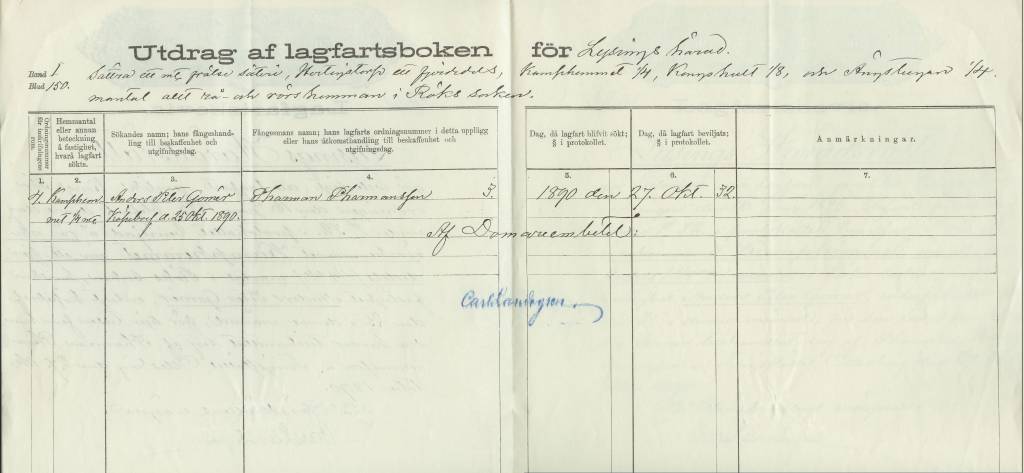 Utdrag af lagfartsboken för Lysings härad.
Band 1
Blad 150.
Sättra ett mtl frälse säteri, Hortingstorp ett fjerdedels, Kamphemmet 1/4, Kongshult 1/8, och Ängstugan 1/4.
mantal allt rå- och rörshemman i Röks socken.
Ordningsnummer för inskrifningen i rum.
Hemmantal eller annan beteckning å fastighet, hvarå lagfart sökts.
Sökandes namn; hans fångeshandling till beskaffenhet och utgifningsdag.
Fångesmans namn; hans lagfarts ordningsnummer i detta upplägg eller hans åtkomsthandling till beskaffenhet och utgifningsdag.
Dag, då lagfart blifvit sökt; § i protokollet.
Dag, då lagfart beviljats; § i protokollet.
Anmärkningar.
1. 2. 3. 4. 5. 6. 7.
4. Kamphem- Anders Peter Gomér Thorman Thormansson 3. 1890 den 27 Okt. 32.
met 1/4 mtl Köpebref d. 25 Okt. 1890.
Af Domareembetet: